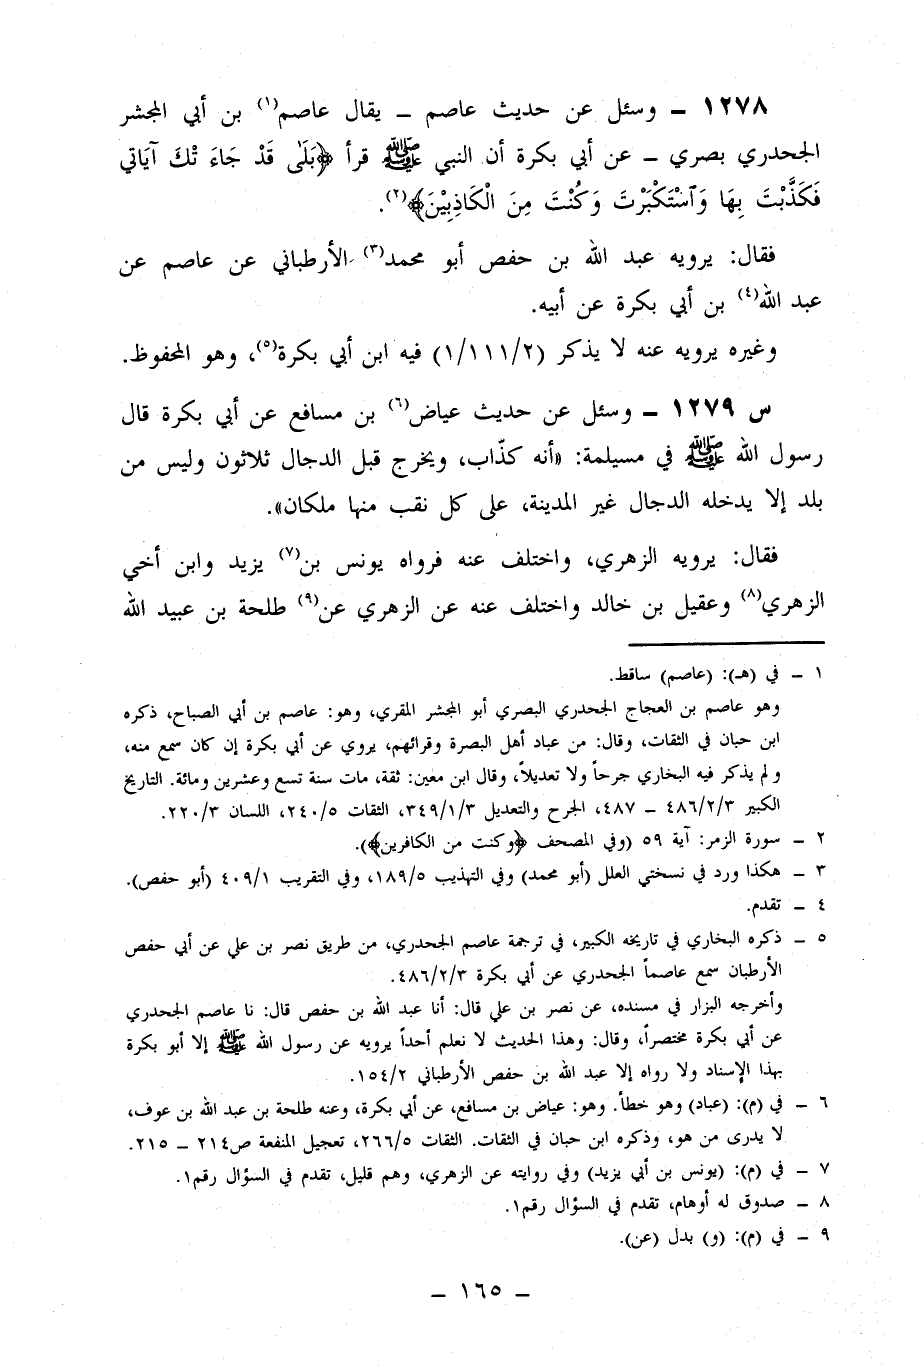 ١٢٧٨ ـ وسئل عن حديث عاصم ـ يقال عاصم(١) بن أبي المجشر
الجحدري بصري ـ عن أبي بكرة أن النبي ﷺ قرأ ﴿بَلَىٰ قَدْ جَاءَ تْكَ آيَاتي
فَكَذَّبْتَ بِهَا وَٱسْتَكْبَرْتَ وَكُنْتَ مِنَ الْكَاذِبِيْنَ﴾(٢).
فقال: يرويه عبد الله بن حفص أبو محمد(٣) الأرطباني عن عاصم عن
عبد الله(٤) بن أبي بكرة عن أبيه.
وغيره يرويه عنه لا يذكر (١/١١١/٢) فيه ابن أبي بكرة(٥)، وهو المحفوظ.
س ١٢٧٩ ـ وسئل عن حديث عياض(٦) بن مسافع عن أبي بكرة قال
رسول الله ﷺ في مسيلمة: «أنه كذّاب، ويخرج قبل الدجال ثلاثون وليس من
بلد إلا يدخله الدجال غير المدينة، على كل نقب منها ملكان».
فقال: يرويه الزهري، واختلف عنه فرواه يونس بن(٧) يزيد وابن أخي
الزهري(٨) وعقيل بن خالد واختلف عنه عن الزهري عن(٩) طلحة بن عبيد الله
١ ـ في (هـ): (عاصم) ساقط.
وهو عاصم بن العجاج الجحدري البصري أبو المجشر المقري، وهو: عاصم بن أبي الصباح، ذكره
ابن حبان في الثقات، وقال: من عباد أهل البصرة وقرائهم، يروي عن أبي بكرة إن كان سمع منه،
ولم يذكر فيه البخاري جرحاً ولا تعديلاً، وقال ابن معين: ثقة، مات سنة تسع وعشرين ومائة. التاريخ
الكبير ٤٨٦/٢/٣ ـ ٤٨٧، الجرح والتعديل ٣٤٩/١/٣، الثقات ٢٤٠/٥، اللسان ٢٢٠/٣.
٢ ـ سورة الزمر: آية ٥٩ (وفي المصحف ﴿وكنت من الكافرين﴾).
٣ ـ هكذا ورد في نسختي العلل (أبو محمد) وفي التهذيب ١٨٩/٥، وفي التقريب ٤٠٩/١ (أبو حفص).
٤ ـ تقدم.
٥ ـ ذكره البخاري في تاريخه الكبير، في ترجمة عاصم الجحدري، من طريق نصر بن علي عن أبي حفص
الأرطبان سمع عاصماً الجحدري عن أبي بكرة ٤٨٦/٢/٣.
وأخرجه البزار في مسنده، عن نصر بن علي قال: أنا عبد الله بن حفص قال: نا عاصم الجحدري
عن أبي بكرة مختصراً، وقال: وهذا الحديث لا نعلم أحداً يرويه عن رسول الله ﷺ إلا أبو بكرة
بهذا الإسناد ولا رواه إلا عبد الله بن حفص الأرطباني ١٥٤/٢.
٦ ـ في (م): (عباد) وهو خطأ. وهو: عياض بن مسافع، عن أبي بكرة، وعنه طلحة بن عبد الله بن عوف،
لا يدرى من هو، وذكره ابن حبان في الثقات. الثقات ٢٦٦/٥، تعجيل المنفعة ص٢١٤ ـ ٢١٥.
٧ ـ في (م): (يونس بن أبي يزيد) وفي روايته عن الزهري، وهم قليل، تقدم في السؤال رقم١.
٨ ـ صدوق له أوهام، تقدم في السؤال رقم١.
٩ ـ في (م): (و) بدل (عن).
ـ ١٦٥ ـ